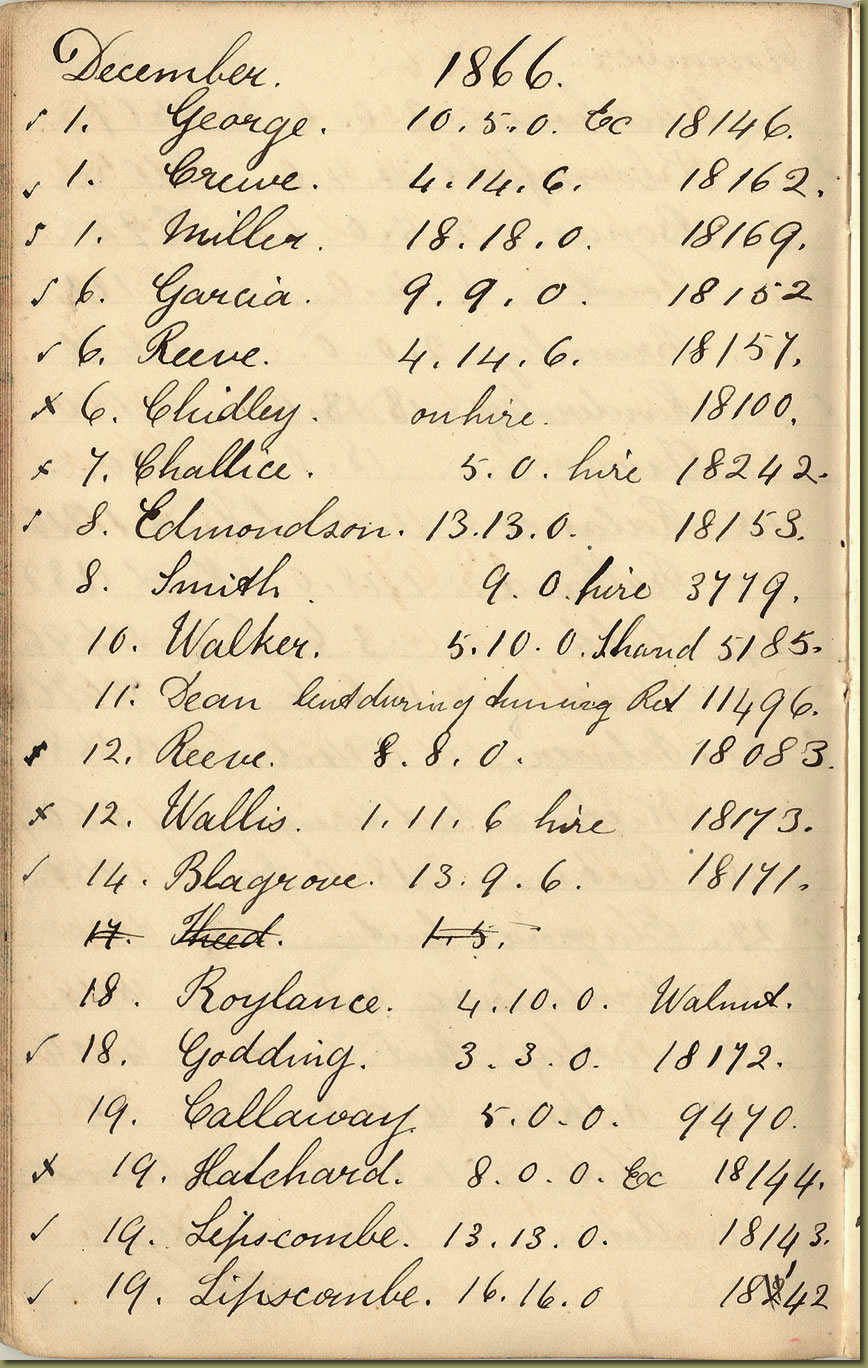 December. 1866.
✓ 1. George. 10. 5. 0. Ec 18146.
✓ 1. Crewe. 4. 14. 6. 18162.
✓ 1. Miller. 18. 18. 0. 18169.
✓ 6. Garcia. 9. 9. 0. 18152
✓ 6. Reeve. 4. 14. 6. 18157.
x 6. Chidley. on hire. 18100.
x 7. Challice. 5. 0. hire 18242.
✓ 8. Edmondson. 13. 13. 0. 18153.
8. Smith. 9. 0. hire 3779.
10. Walker. 5. 10. 0. Shand 5185.
11. Dean lent during tuning Ret 11496.
x 12. Reeve. 8. 8. 0. 18083.
x 12. Wallis. 1. 11. 6 hire 18173.
✓ 14. Blagrove. 13. 9. 6. 18171.
17. Theed. 1. 5.
18. Roylance. 4. 10. 0. Walnut.
✓ 18. Godding. 3. 3. 0. 18172.
19. Callaway. 5. 0. 0. 9470.
x 19. Hatchard. 8. 0. 0. Ec 18144.
✓ 19. Lipscombe. 13. 13. 0. 18143.
✓ 19. Lipscombe. 16. 16. 0 18142